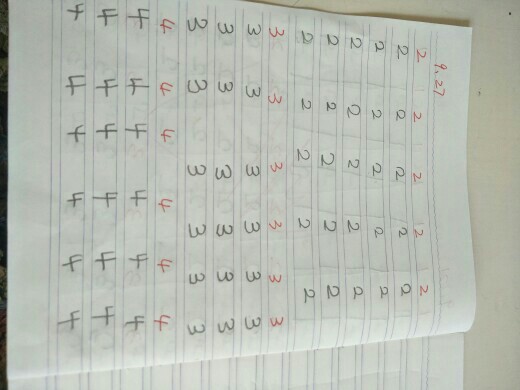 9.27
2 2 2 2 2
2 2 2 2 2
2 2 2 2 2
2 2 2 2 2
2 2 2 2 2
2 2 2 2 2
3 3 3 3 3 3
3 3 3 3 3 3
3 3 3 3 3 3
3 3 3 3 3 3
4 4 4 4 4 4
4 4 4 4 4 4
4 4 4 4 4 4
4 4 4 4 4 4